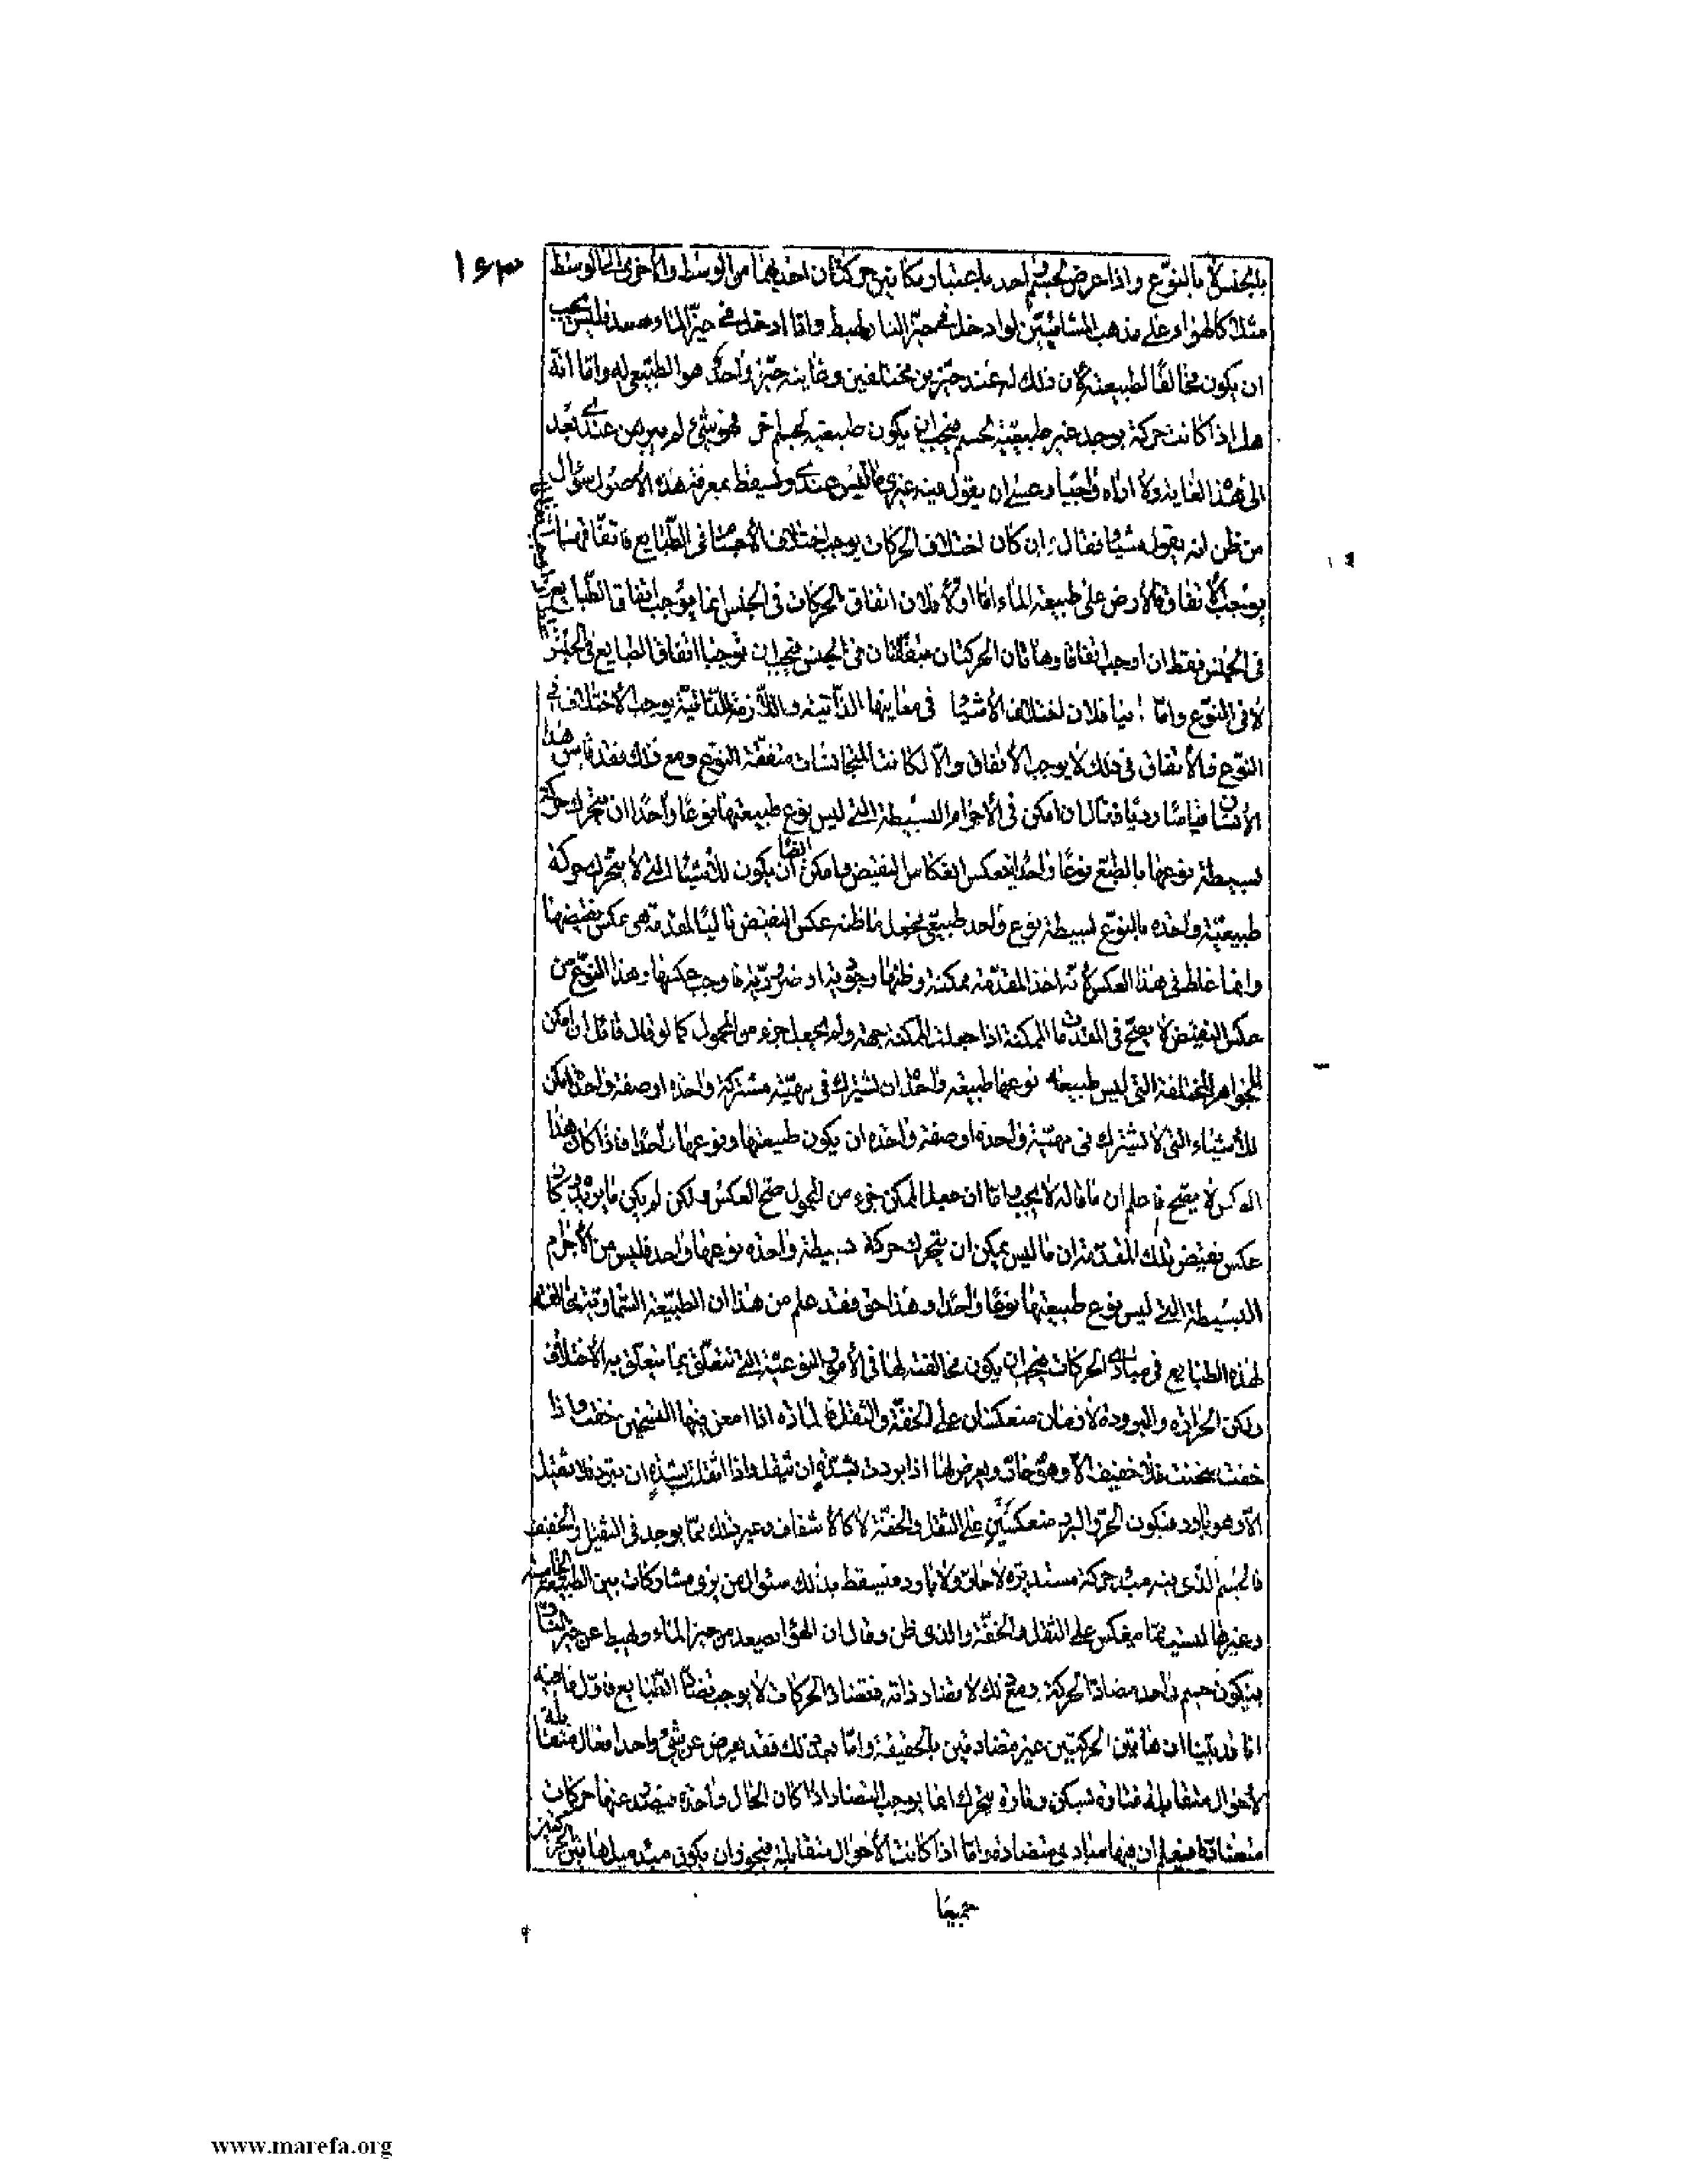 ١٤٣
بالجنس لا بالنوع واذا عرض لجسم احد باعتبار مكانين حركتان احديهما من الوسط والاخرى الى الوسط
مثلا كالهواء على مذهب المشائيين لو ادخل فى حيز النار لهبط واذا ادخل فى حيز الماء صعد فليس يجب
ان يكون مخالفا لطبيعته كان ذلك له عند حيزين مختلفين وغايته حيز واحد هو الطبيعى له واما انه
هل اذا كانت حركة يوجد غير طبيعية لجسم فيجب ان يكون طبيعية لجسم اخر فهو شئ لم يبرهن عندى بعد
الى هذا الغاية ولا اراه واجبا وعسى ان يقول فيه غيرى ما ليس عندى ويسقط بمعرفة هذه الاصول سؤال
من ظن انه يقول شيئا فقال ان كان اختلاف الحركات يوجب اختلاف الاجسام فى الطبايع فاتفاقهما
يوجب الاتفاق فالارض على طبيعة الماء اما اولا فلان اتفاق الحركات فى الجنس انما يوجب اتفاق الطبايع
فى الجنس فقط ان اوجب اتفاقا وهاتان الحركتان متفقتان فى الجنس فيجب ان توجبا اتفاق الطبايع فى الجنس
لا فى النوع واما ثانيا فلان اختلاف الاشيا فى معانيها الذاتية واللازمة الذاتية يوجب الاختلاف فى
النوع فالاتفاق فى ذلك لا يوجب الاتفاق والا لكانت المتجانسات متفقة النوع ومع ذلك فقد قاس هذا
الانسان قياسا رديا فقال ان امكن فى الاجرام البسيطة التى ليس نوع طبيعتها نوعا واحدا ان يتحرك حركة
بسيطة نوعها بالطبع نوعا واحدا فبعكس النقيض وامكن ايضا ان يكون للاشيا التى لا يتحرك حركة
طبيعية واحدة بالنوع بسيطة نوع واحد طبيعى فجعل ما ظنه عكس النقيض تاليا لمقدمة هى عكس نقيضها
وانما غلط فى هذا العكس لانه اخذ المقدمة ممكنة وظنها وجودية او ضرورية فاوجب عكسها وهذا النوع من
عكس النقيض لا يصح فى المقدمات الممكنة اذا جعلت الممكنة جهة ولم يجعل جزء من المحمول كما لو قال قائل ان امكن
للجواهر المختلفة التى ليس طبيعة نوعها طبيعة واحدة ان تشترك فى مهية مشتركة واحدة او صفة واحدة امكن
للاشياء التى لا تشترك فى مهية واحدة او صفة واحدة ان يكون طبيعتها ونوعها واحدا فاذا كان هذا
العكس لا يصح فاعلم ان ما قاله لا يجب واما ان جعل الممكن جزء من المحمول صح العكس ولكن لم يكن ما يريد وكان
عكس نقيض تلك المقدمة ان ما ليس يمكن ان يتحرك حركة بسيطة واحدة نوعها واحد فليس من الاجرام
البسيطة التى ليس نوع طبيعتها نوعا واحدا وهذا حق فقد علم من هذا ان الطبيعة السماوية مخالفة
لهذه الطبايع فى مبادى الحركات فيجب ان يكون مخالفة لها فى الامور النوعية التى تتعلق بما تتعلق به الاختلاف
ولكن الحرارة والبرودة لازمان منعكسان على الخفة والثقل فالمادة اذا امعن فيها التسخين خفت واذا
خفت سخنت فلا خفيف الا وهو حار ويعرض لها اذا بردت بشدة ان تثقل واذا اثقلت بشدة ان تبرد فلا ثقيل
الا وهو بارد فيكون الحر والبرد منعكسين على الثقل والخفة لا كالاشفاف وغير ذلك مما يوجد فى الثقيل والخفيف
فالجسم الذى فيه مبدء حركة مستديرة لا حار ولا بارد فيسقط بذلك سؤال من يرى مشاركات بين الطبيعة الخامسة
وغيرها ليست مما ينعكس على الثقل والخفة والذى ظن وقال ان الهواء يصعد من حيز الماء ويهبط عن حيز النار
فيكون جسم واحد مضاد الحركة ومع ذلك لا مضاد ذاته فتضاد الحركات لا يوجب تضاد الطبايع فاول ما فيه
انا قد بينا ان هاتين الحركتين غير متضادتين بالحقيقة واما بعد ذلك فقد يعرض عن شئ واحد افعال متقابلة
لاحوال متقابلة فتارة يسكن وتارة يتحرك انما يوجب التضاد اذا كان الحال واحدة فيصدر عنها حركات
متضادة فيعلم ان فيها مبادى متضادة واما اذا كانت الاحوال متقابلة فيجوز ان يكون مبدء ميلها بين الحيزين
جميعا
www.marefa.org